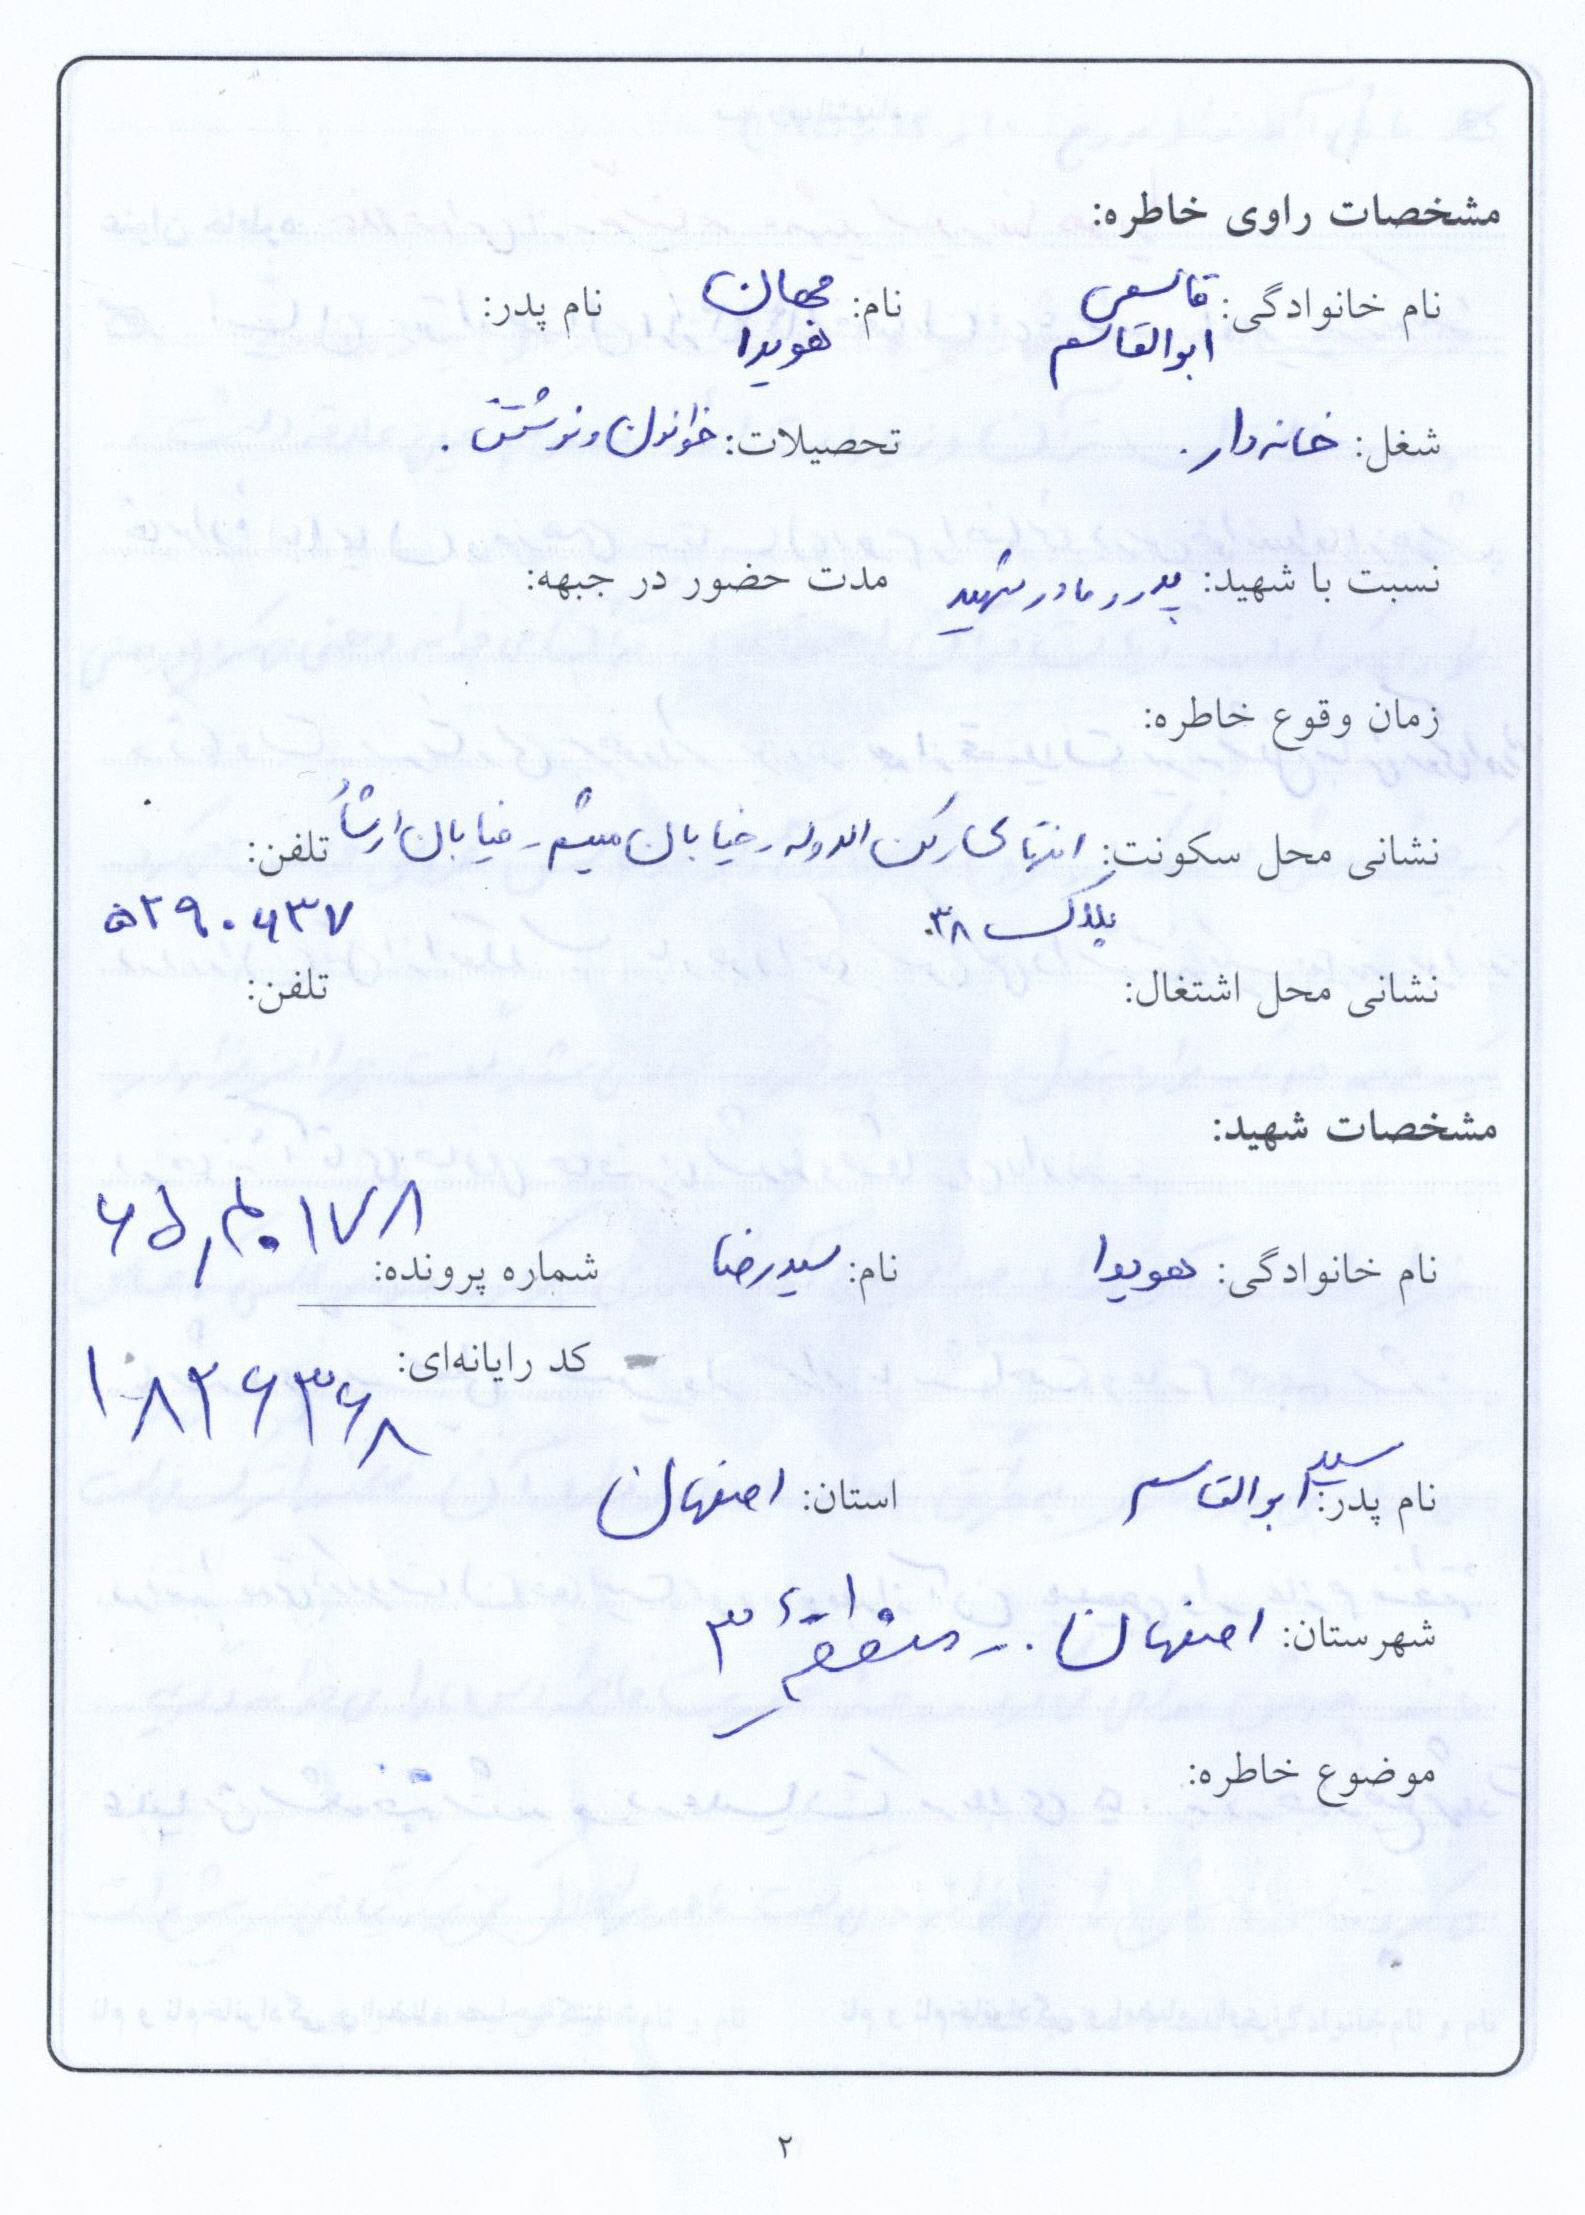 مشخصات راوی خاطره:
نام خانوادگی: قاسمی نام: جهان نام پدر:
ابوالقاسم هویدا
شغل: خانه دار. تحصیلات: خواندن و نوشتن.
نسبت با شهید: پدر و مادر شهید مدت حضور در جبهه:
زمان وقوع خاطره:
نشانی محل سکونت: انتهای رکن الدوله - خیابان میثم - خیابان ارشاد تلفن:
پلاک ۳۸. ۵۲۹۰۶۳۷
نشانی محل اشتغال: تلفن:
مشخصات شهید:
نام خانوادگی: هویدا نام: سیدرضا شماره پرونده:
کد رایانه‌ای:
۱۰۸۲۶۳۶۸
نام پدر: سید ابوالقاسم استان: اصفهان
شهرستان: اصفهان. - منطقه ۳
موضوع خاطره:
۲